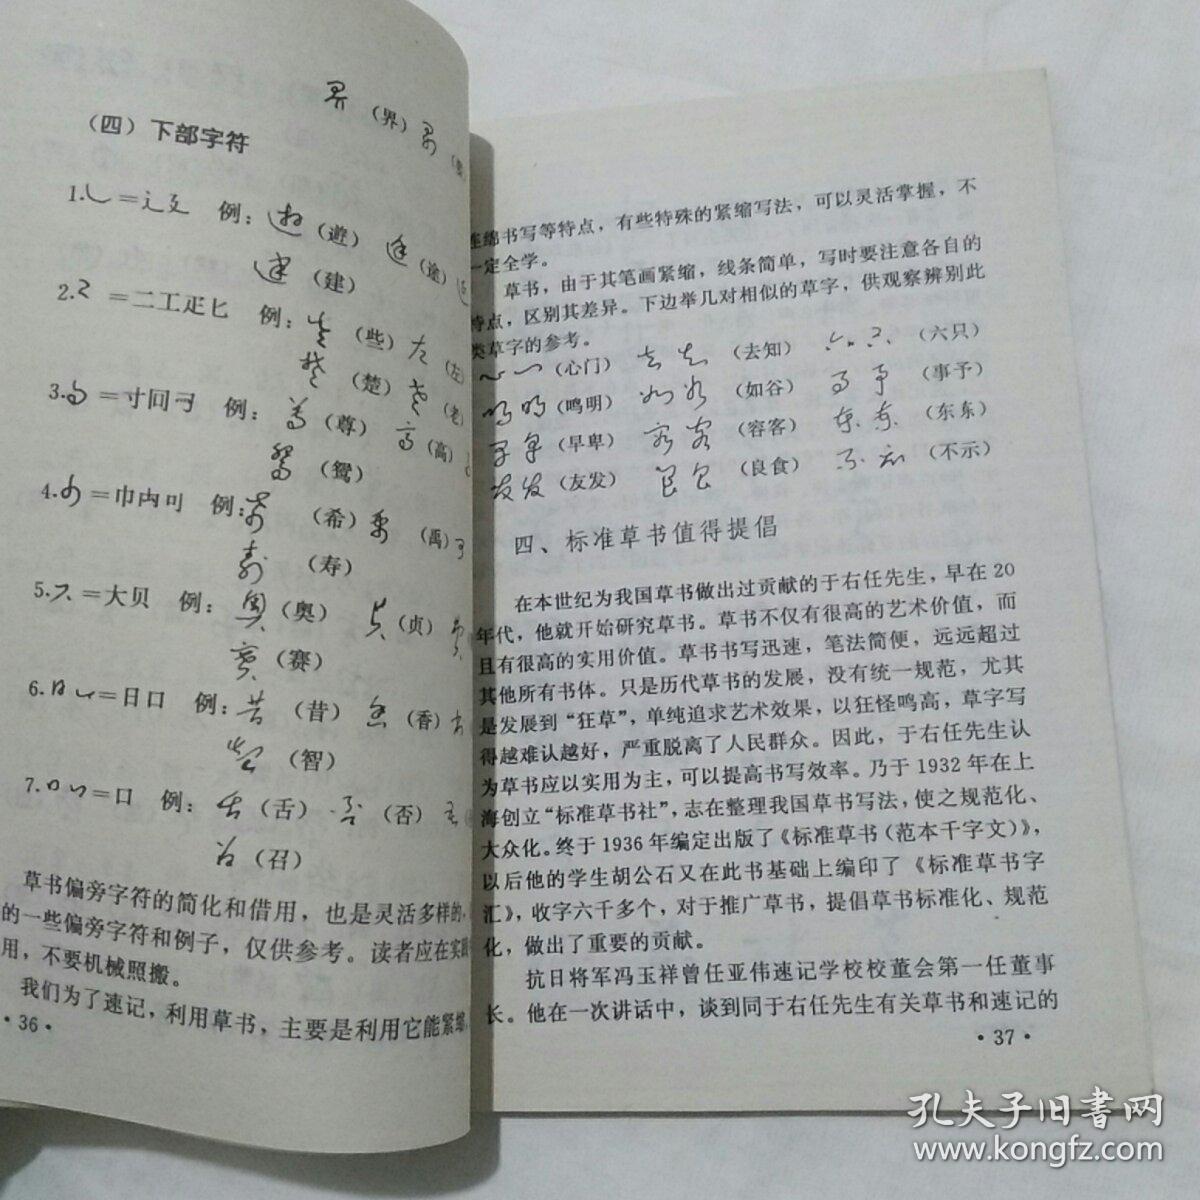 （界）
（四）下部字符
1. = 辶廴 例：（遊）（途）
（建）
2. =二工疋匕 例：（些）（左）
（楚）（老）
3. =寸回弓 例：（尊）（高）
（鸳）
4. =巾内 例：（希）（禹）
（寿）
5. =大贝 例：（奥）（贞）
（赛）
6. =日口 例：（昔）（香）
（智）
7. =口 例：（舌）（否）
（召）
草书偏旁字符的简化和借用，也是灵活多样的，
的一些偏旁字符和例子，仅供参考。读者应在实践
用，不要机械照搬。
我们为了速记，利用草书，主要是利用它能紧缩
·36·
连绵书写等特点，有些特殊的紧缩写法，可以灵活掌握，不
一定全学。
草书，由于其笔画紧缩，线条简单，写时要注意各自的
特点，区别其差异。下边举几对相似的草字，供观察辨别此
类草字的参考。
（心门）（去知）（六只）
（鸣明）（如谷）（事予）
（早卑）（容客）（东东）
（友发）（良食）（不示）
四、标准草书值得提倡
在本世纪为我国草书做出过贡献的于右任先生，早在20
年代，他就开始研究草书。草书不仅有很高的艺术价值，而
且有很高的实用价值。草书书写迅速，笔法简便，远远超过
其他所有书体。只是历代草书的发展，没有统一规范，尤其
是发展到“狂草”，单纯追求艺术效果，以狂怪鸣高，草字写
得越难认越好，严重脱离了人民群众。因此，于右任先生认
为草书应以实用为主，可以提高书写效率。乃于1932年在上
海创立“标准草书社”，志在整理我国草书写法，使之规范化、
大众化。终于1936年编定出版了《标准草书（范本千字文）》，
以后他的学生胡公石又在此书基础上编印了《标准草书字
汇》，收字六千多个，对于推广草书，提倡草书标准化、规范
化，做出了重要的贡献。
抗日将军冯玉祥曾任亚伟速记学校校董会第一任董事
长。他在一次讲话中，谈到同于右任先生有关草书和速记的
·37·
孔夫子旧书网
www.kongfz.com